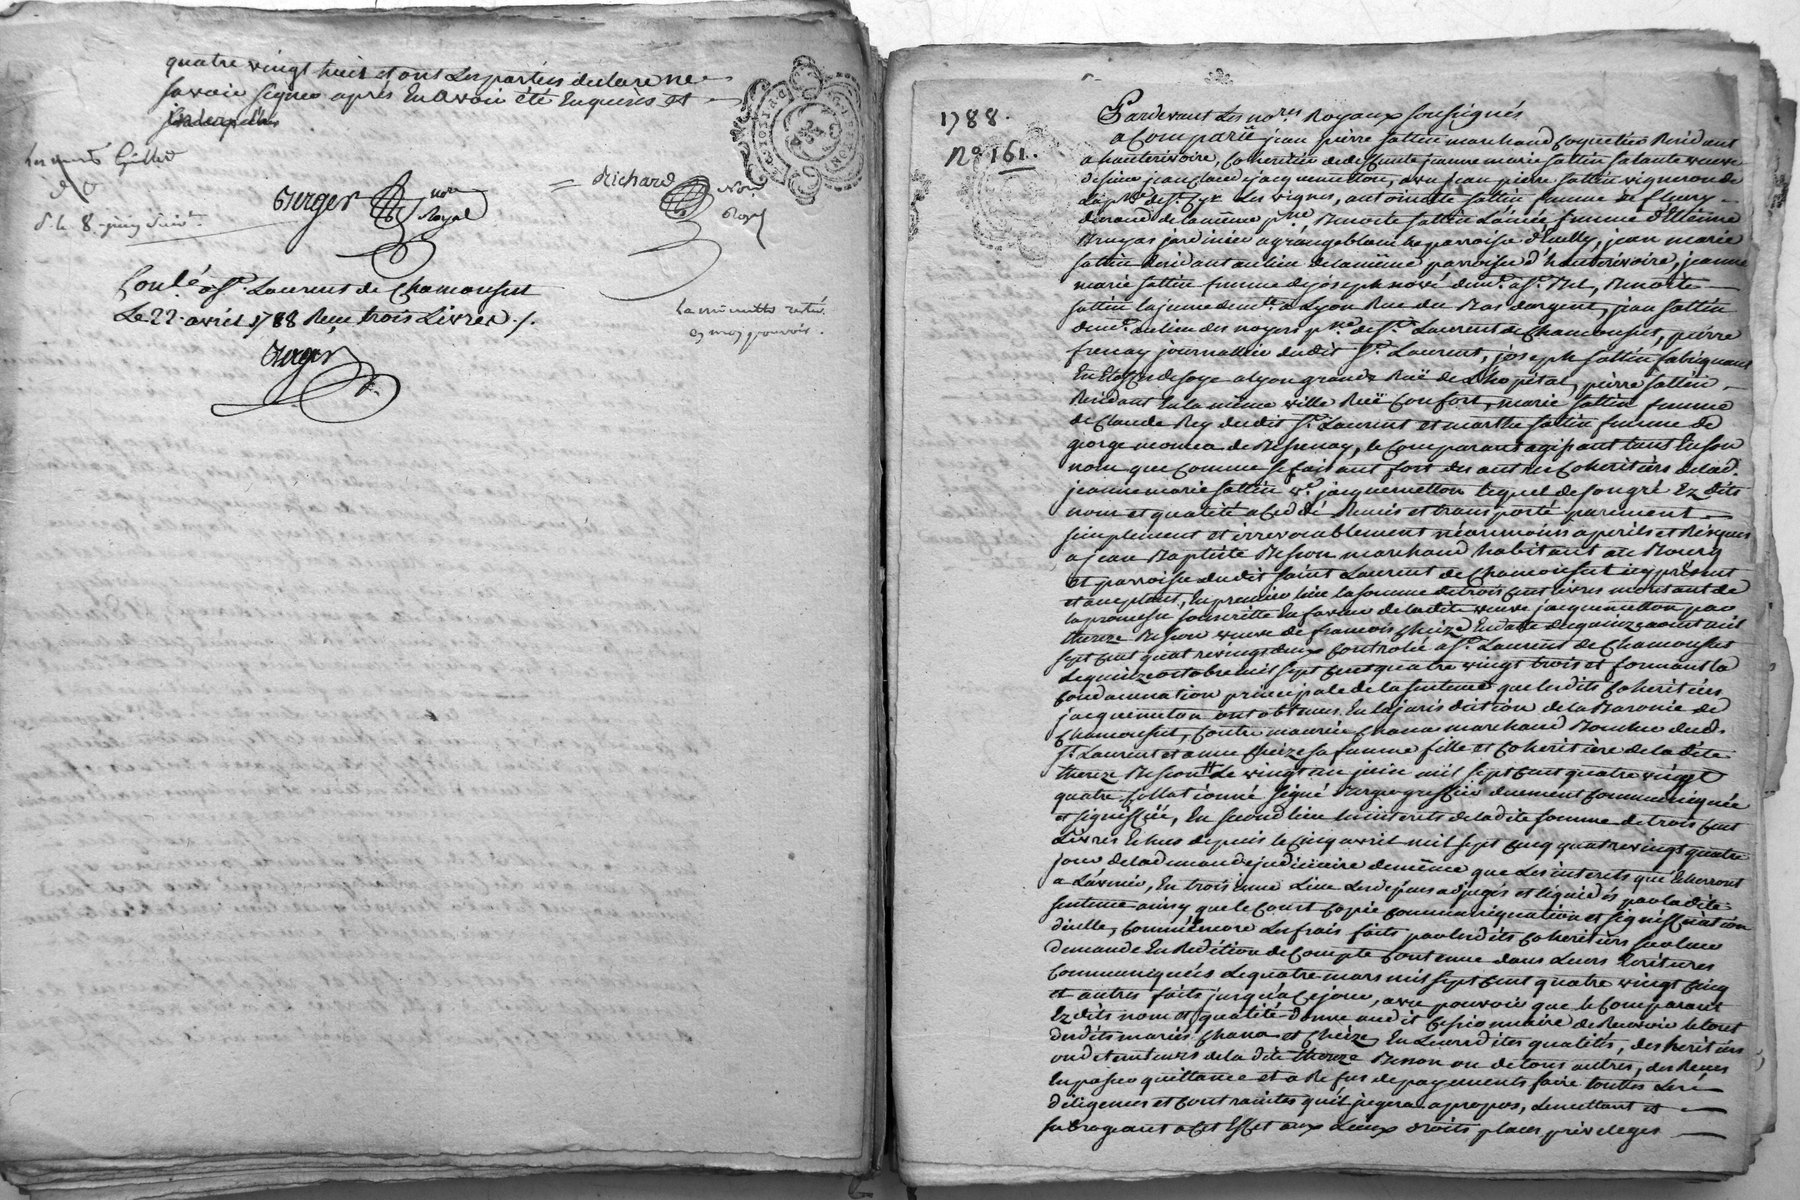 quatre vingt huit et ont les parties declare ne
savoir signer après En avoir été Enquises et
Gillet
Berger
nore
Royal
Richard
Nore
Royal
Conlé à St. Laurent de Chamousset
Le 22. avril 1788 Reçu trois Livres ./.
Berger
La minutte restée
En mon pouvoir.
1788.
No. 161.
Pardevant Les nores Royaux soussignés
a Comparu jean pierre sattin marchand Coquetier Residant
a hauterivoire, Coheritier de defunte jeanne marie sattin sa tante veuve
de sieur jean Claude jacquemetton, avec jean pierre sattin vigneron de
Les vignes, antoinette sattin femme de fleury
durand de la même psse Benoite sattin L'ainée femme d'Etienne
Bruyas jardinier a grange blanche parroisse d'Ecully, jean marie
sattin Residant au lieu de la même parroisse d'hauterivoire, jeanne
marie sattin femme de joseph Benoite
sattin la jeune demte a Lyon Rue du Bas dargent, jean sattin
demt au lieu des noyers psse de St. Laurent de Chamousset, pierre
frenay journallier dudit St. Laurent, joseph sattin fabriquant
En Etoffes de soye a Lyon grande Ruë de L'hopital, pierre sattin
Residant En la même ville Ruë Confort, marie sattin femme
de Claude Rey dudit St. Laurent et marthe sattin femme de
george de Bessenay, le Comparant agissant tant En son
nom que Comme se faisant fort des autres Coheritiers de lad.
jeanne marie sattin ve. jacquemetton lequel de son gré Ez dits
nom et qualité a Cedé Remis et transporté purement
simplement et irrevocablement néanmoins a perils et Risques
a jean Baptiste Besson marchand habitant au Bourg
et parroisse dudit saint Laurent de Chamousset icy présent
et acceptant, En premier lieu la somme de trois Cent livres montant de
la promesse souscritte En faveur de ladite veuve jacquemetton par
thereze Besson veuve de françois Cheize En datte du quinze aoust mil
sept Cent quatrevingt deux Controlée a St. Laurent de Chamousset
Le quinze octobre mil sept Cent quatre vingt trois et formant la
Condamnation principale de la sentence que lesdits Coheritiers
jacquemetton ont obtenue En la jurisdiction de la Baronie de
Chamousset, Contre maurice Chana marchand Boucher dud.
St. Laurent et anne Cheize sa femme fille et Coheritière de ladite
thereze Besson Le vingt un juin mil sept Cent quatre vingt
quatre Collationné signé Berger greffier duement Communiquée
et signiffiée, En second lieu les interets de ladite somme de trois Cent
Livres Echus depuis le Cinq avril mil sept Cent quatrevingt quatre
jour de la demande judiciaire de même que Les interets qui Echerront
a L'avenir, En troisieme Lieu Les depens adjugés et liquidés par ladite
sentence ainsy que le Coust Copie Communiquation et signiffication
dicelle, Comme Encore Les frais faits par lesdits Coheritiers sur leur
demande En Redition de Compte Contenue dans Leurs Ecritures
Communiquées Le quatre mars mil sept Cent quatre vingt Cinq
et autres faits jusqu'a Ce jour, avec pouvoir que le Comparant
Ez dits nom et qualité donne audit Cessionnaire de Recevoir le tout
desdits mariés Chana et Cheize En Leursdites qualités, des heritiers
ou detenteurs de la dite thereze Besson ou de tous autres, des Reçus
En passer quittance et a Refus de payements faire touttes Les
diligences et Contraintes qu'il jugera apropos, Le mettant et
subrogeant a Cet Effet aux Lieux droits places privileges